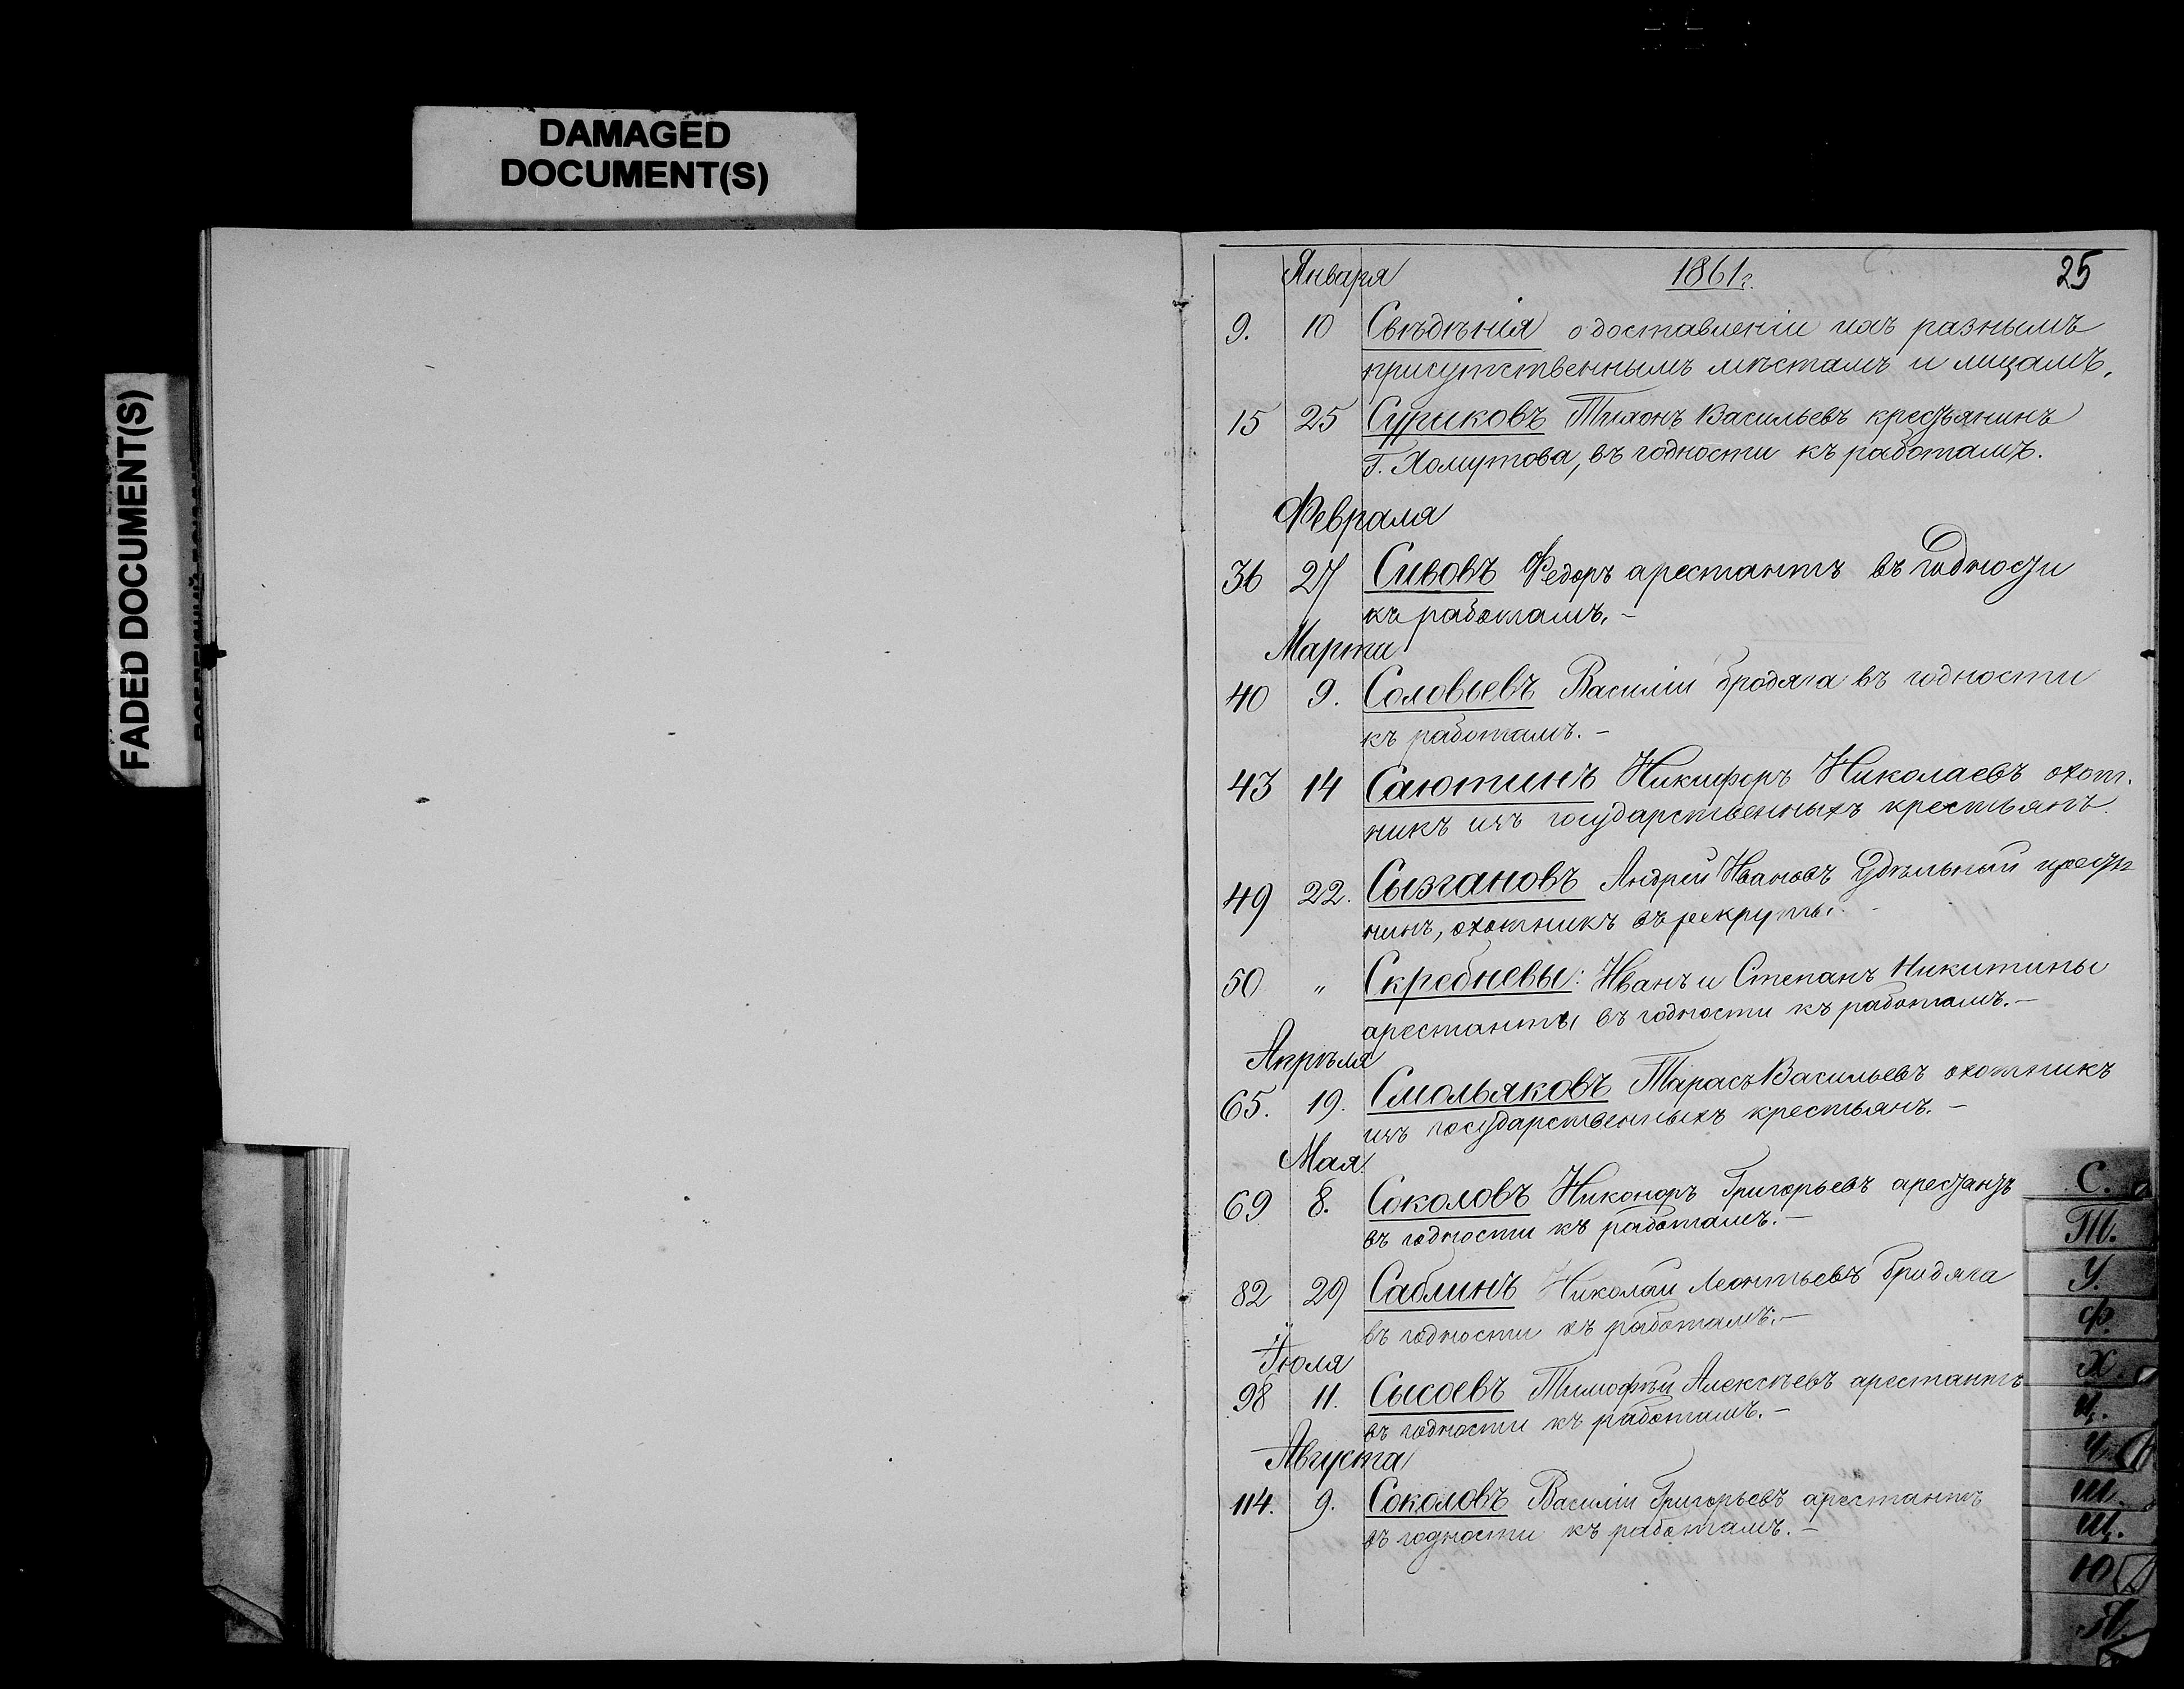 DAMAGED
DOCUMENT(S)
FADED DOCUMENT(S)
Января 1861г. 25
9. 10 Свѣдѣнія о доставленіи ихъ разнымъ
присутственнымъ мѣстамъ и лицамъ.
15 25 Суриковъ Тихонъ Васильевъ крестьянинъ
Г. Хомутова, въ годности къ работамъ.
Февраля
36 27 Сивовъ Федоръ арестантъ въ годности
къ работамъ. –
Марта
40 9. Соловьевъ Василій бродяга въ годности
къ работамъ. –
43 14 Саютинъ Никифоръ Николаевъ охот-
никъ изъ государственныхъ крестьянъ.
49 22. Сызгановъ Андрей Ивановъ Удѣльный крестья
нинъ, охотникъ въ рекруты.
50 " Скребневы: Иванъ и Степанъ Никитины
арестанты въ годности къ работамъ. –
Апрѣля
65. 19. Смольяковъ Тарасъ Васильевъ охотникъ
изъ государственныхъ крестьянъ. –
Мая
69 8. Соколовъ Никоноръ Григорьевъ арестантъ
въ годности къ работамъ. –
82 29 Саблинъ Николай Леонтьевъ бродяга
въ годности къ работамъ. –
Іюля
98 11. Сысоевъ Тимофѣй Алексѣевъ арестантъ
въ годности къ работамъ. –
Августа
114. 9. Соколовъ Василій Григорьевъ арестантъ
въ годности къ работамъ. –
С.
Т.
У.
Ф.
Х.
Ц.
Ч.
Ш.
Щ.
Ю
Я.